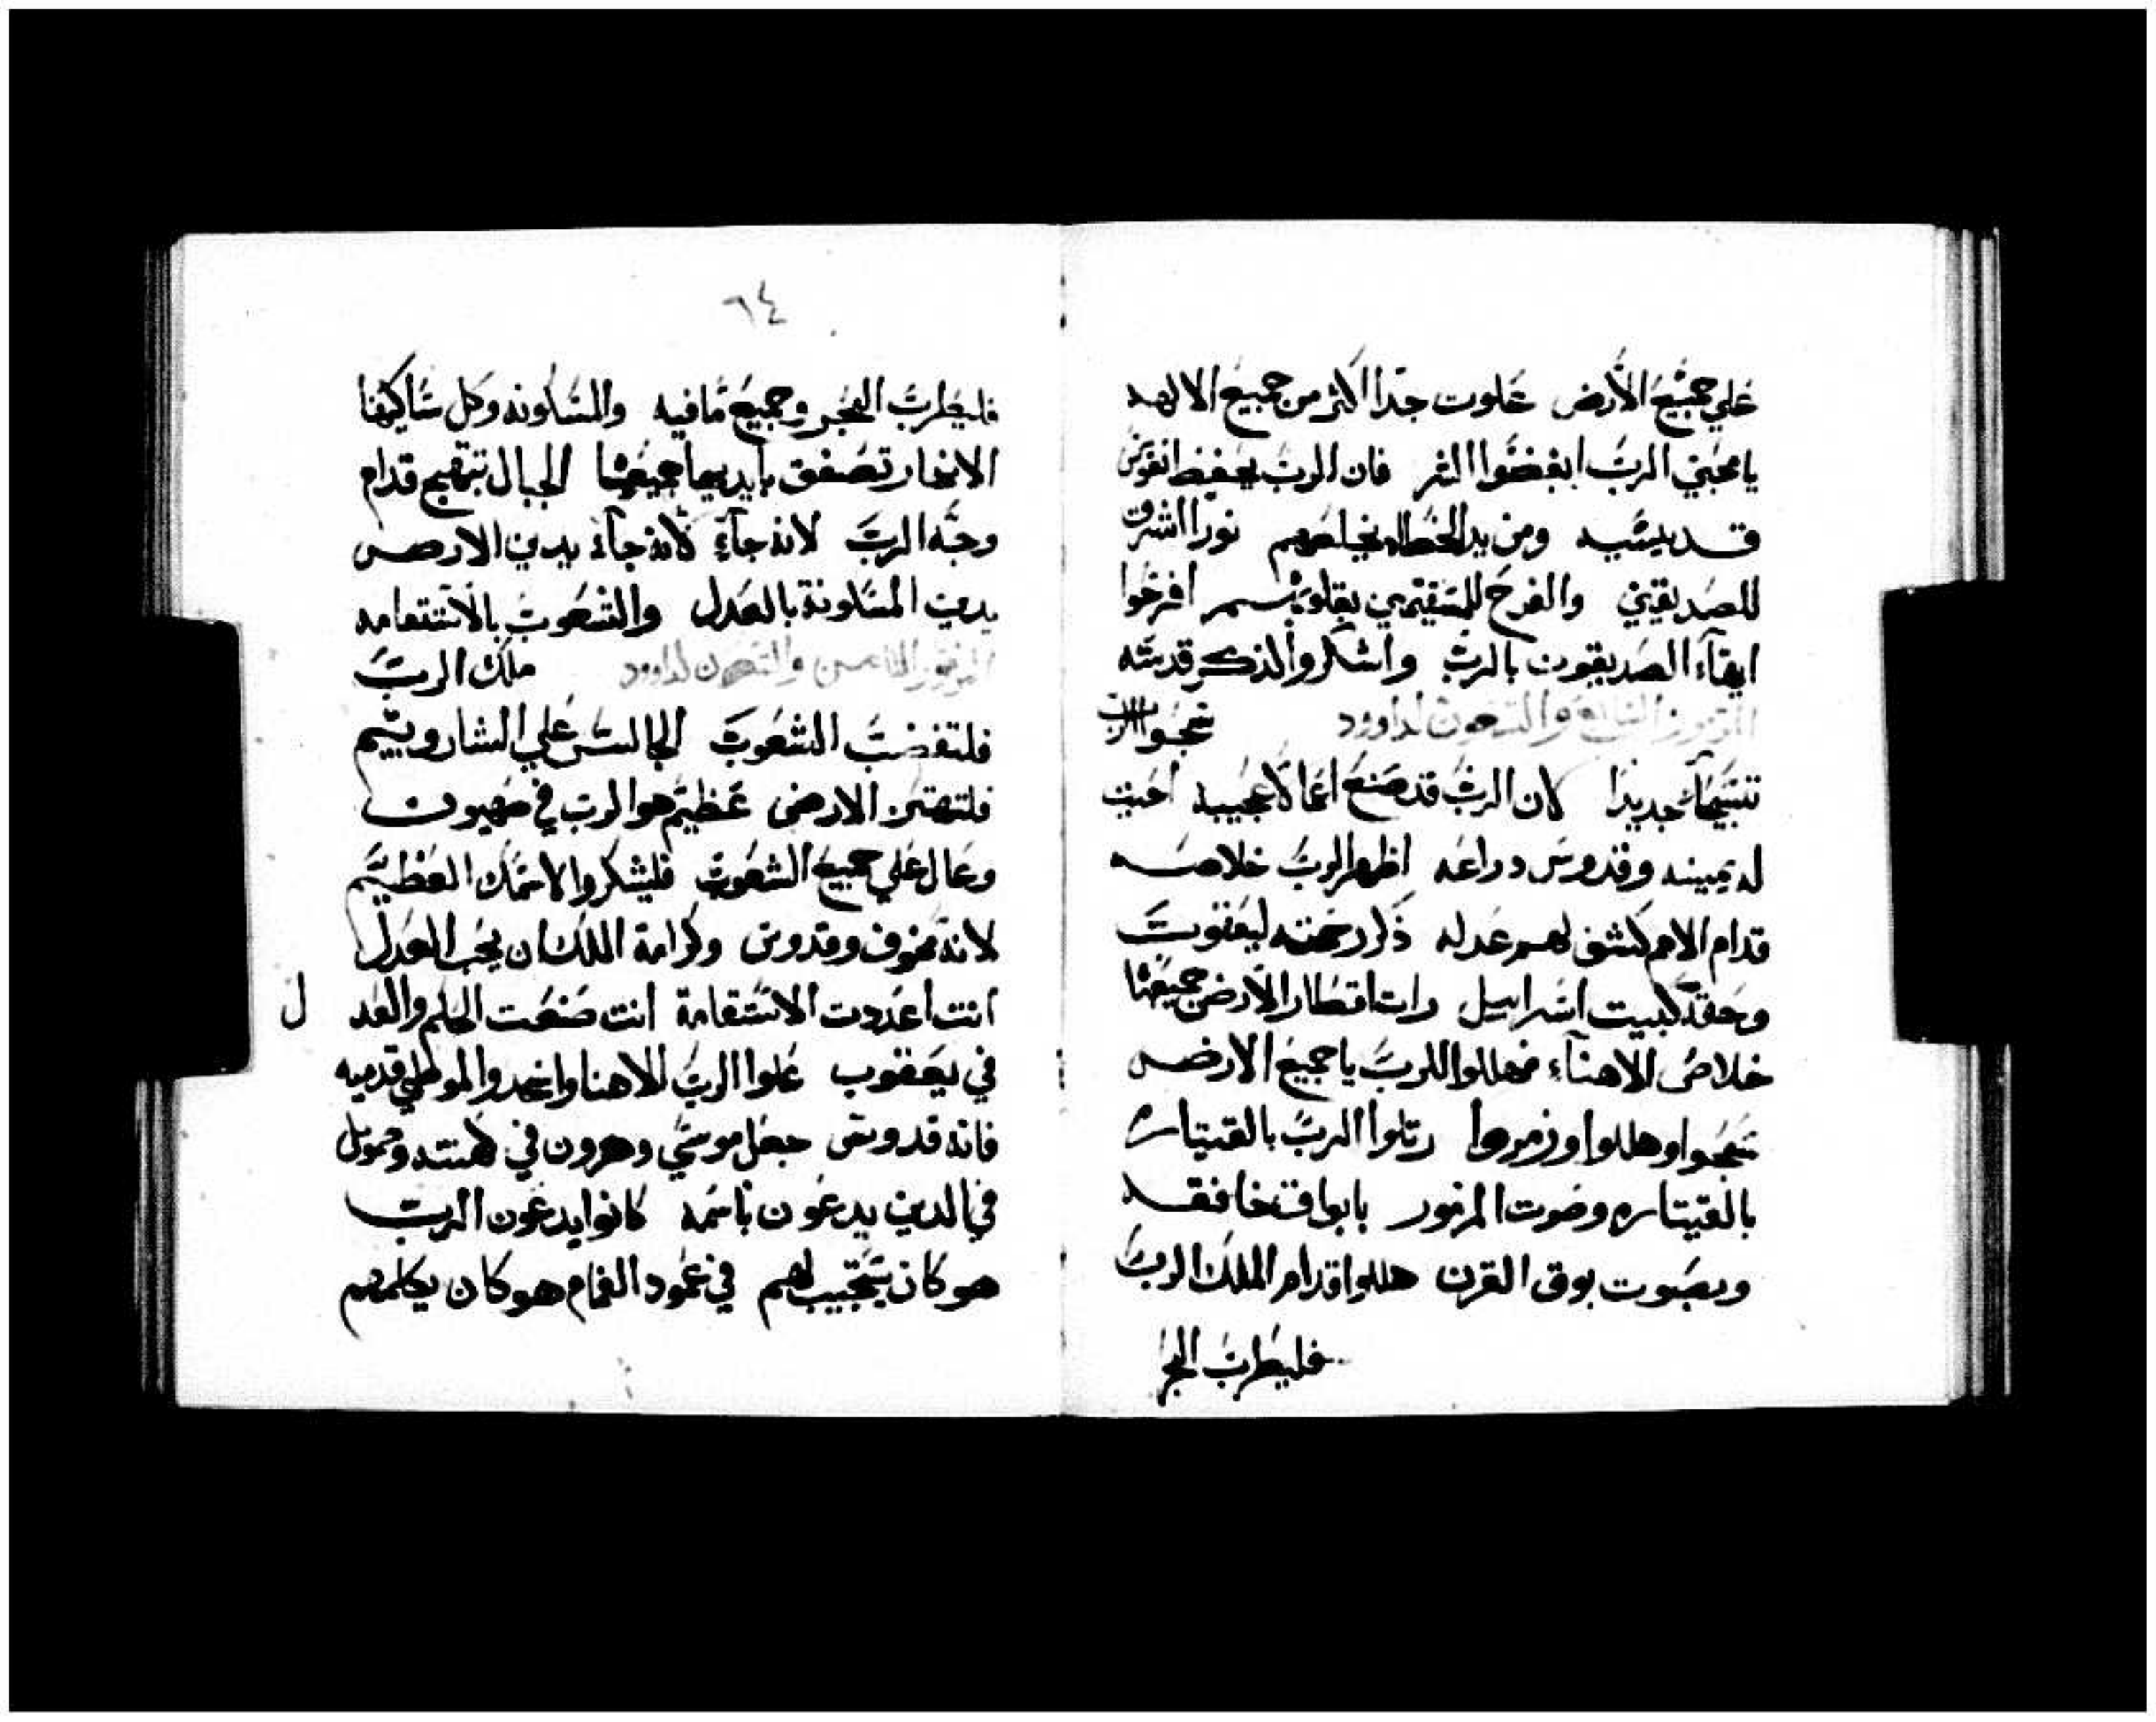 علي جميع الارض علوت جدا اكثر من جميع الالهه
يا محبي الرب ابغضوا الشر فان الرب يحفظ نفوس
قديسيه ومن يد الخطاه يخلصهم نورا اشرق
للصديقين والفرح للمستقيمين بقلوبهم افرحوا
ايهآء الصديقون بالرب واشكروا لذكر قدسه
المزمور السابع والتسعون لداوود سبحوا الرب
تسبيحآ جديدا لان الرب قد صنع اعمالا عجيبه احيت
له يمينه وقدوس دراعه اظهر الرب خلاصه
قدام الامم كشف لهم عدله ذكر رحمته ليعقوب
وحقه لبيت اسراييل رات اقطار الارض جميعها
خلاص الاهنآء فهللوا للرب يا جميع الارض
سبحوا وهللوا وزمروا رتلوا الرب بالقيتاره
بالقيتاره وصوت المزمور بابواق خافقه
وبصوت بوق القرن هللوا قدام الملك الرب
فليطرب البحر
٦٤
فليطرب البحر وجميع ما فيه والمسكونه وكل ساكنها
الانهار تصفق بايديها جميعها الجبال تبتهج قدام
وجه الرب لانه جآء لانه جآء يدين الارض
يدين المسكونة بالعدل والشعوب بالاستقامه
المزمور الثامن والتسعون لداوود ملك الرب
فلتغضب الشعوب الجالس علي الشاروبيم
فلتهتز الارض عظيم هو الرب في صهيون
وعال علي جميع الشعوب فليشكروا لاسمك العظيم
لانه مخوف وقدوس وكرامة الملك ان يحب العدل
انت اعددت الاستقامة انت صنعت الحلم والعد ل
في يعقوب علوا الرب الاهنا واسجدوا لموطي قدميه
فانه قدوس جعل موسي وهرون في كهنته وصموىل
في الدين يدعون باسمه كانوا يدعون الرب
هو كان يستجيب لهم في عمود الغمام هو كان يكلمهم